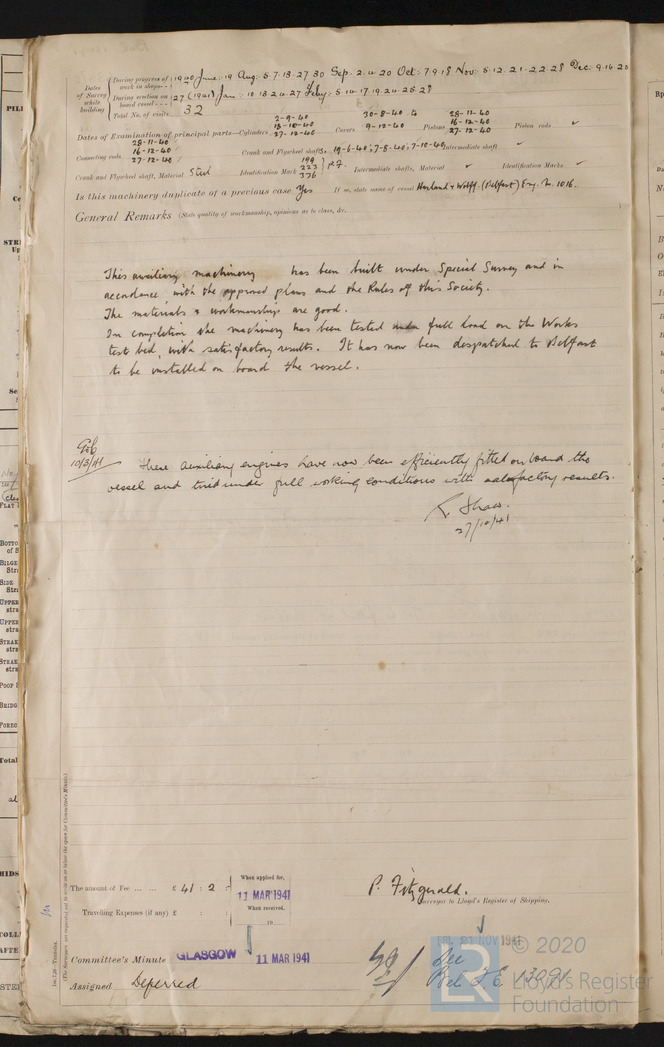 Dates of Survey while building
During progress of work in shops - - 1940 June: 19 Aug: 5.7.13.27.30 Sep: 2.4.20 Oct: 7.9.18 Nov: 5.12.21.22.28 Dec: 9.16.20
During erection on board vessel - - - 27 (1941) Jan: 10.13.24.27 Feby: 5.14.17.19.24.25.28
Total No. of visits 32
Dates of Examination of principal parts—Cylinders 2-9-40 18-10-40 27-12-40 Covers 30-8-40 to 9-12-40 Pistons 28-11-40 16-12-40 27-12-40 Piston rods ✓
Connecting rods 28-11-40 16-12-40 27-12-40 Crank and Flywheel shafts, 19-6-40; 7-8-40; 7-10-40 Intermediate shaft ✓
Crank and Flywheel shaft, Material Steel Identification Mark 199 223 376 Intermediate shafts, Material ✓ Identification Marks ✓
Is this machinery duplicate of a previous case Yes If so, state name of vessel Harland & Wolff (Belfast) Eng. No. 1016.
General Remarks (State quality of workmanship, opinions as to class, &c.
This auxiliary machinery has been built under Special Survey and in
accordance with the approved plans and the Rules of this Society.
The materials & workmanship are good.
On completion the machinery has been tested under full load on the Works
test bed, with satisfactory results. It has now been despatched to Belfast
to be installed on board the vessel.
10/3/41
These auxiliary engines have now been efficiently fitted on board the
vessel and tried under full working conditions with satisfactory results.
R. Shaw.
27/10/41
The amount of Fee ... ... £ 41 : 2 : -
When applied for,
11 MAR 1941
Travelling Expenses (if any) £ : :
When received,
19
P. Fitzgerald.
Surveyor to Lloyd's Register of Shipping.
Committee's Minute GLASGOW 11 MAR 1941
FRI. 21 NOV 1941
Assigned Deferred
See
Bel F.E. 13091
© 2020
LR
Lloyd's Register
Foundation